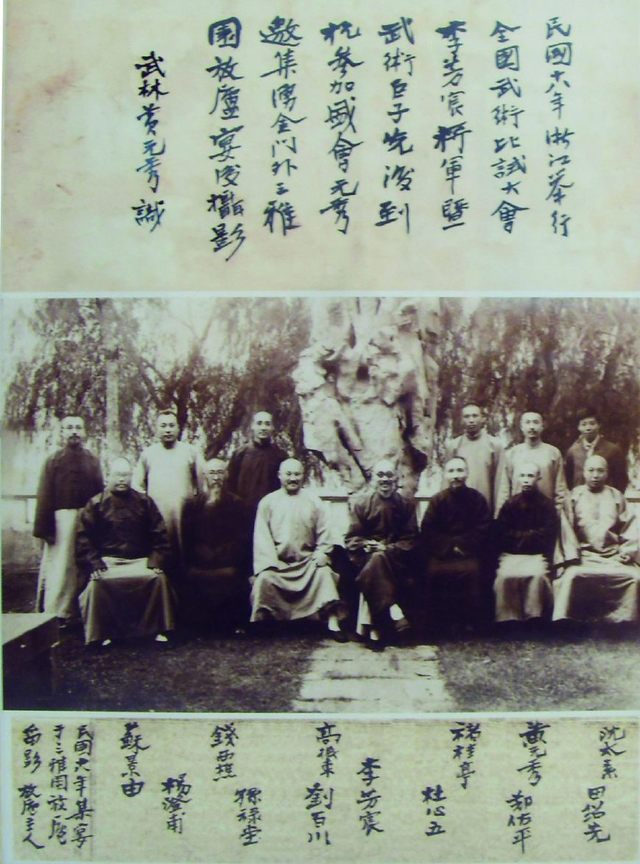 民國十八年浙江举行
全國武術比試大會
李芳宸將軍暨
武術巨子先後到
杭參加盛會元秀
邀集湧金门外三雅
園放廬宴後攝影
武林黄元秀識
田绍先
黄元秀
郑佐平
褚桂亭
杜心五
李芳宸
高振東
劉百川
錢西樵
孫禄堂
楊澄甫
蘇景由
民國十八年集宴
于三雅園放廬
留影 放廬主人